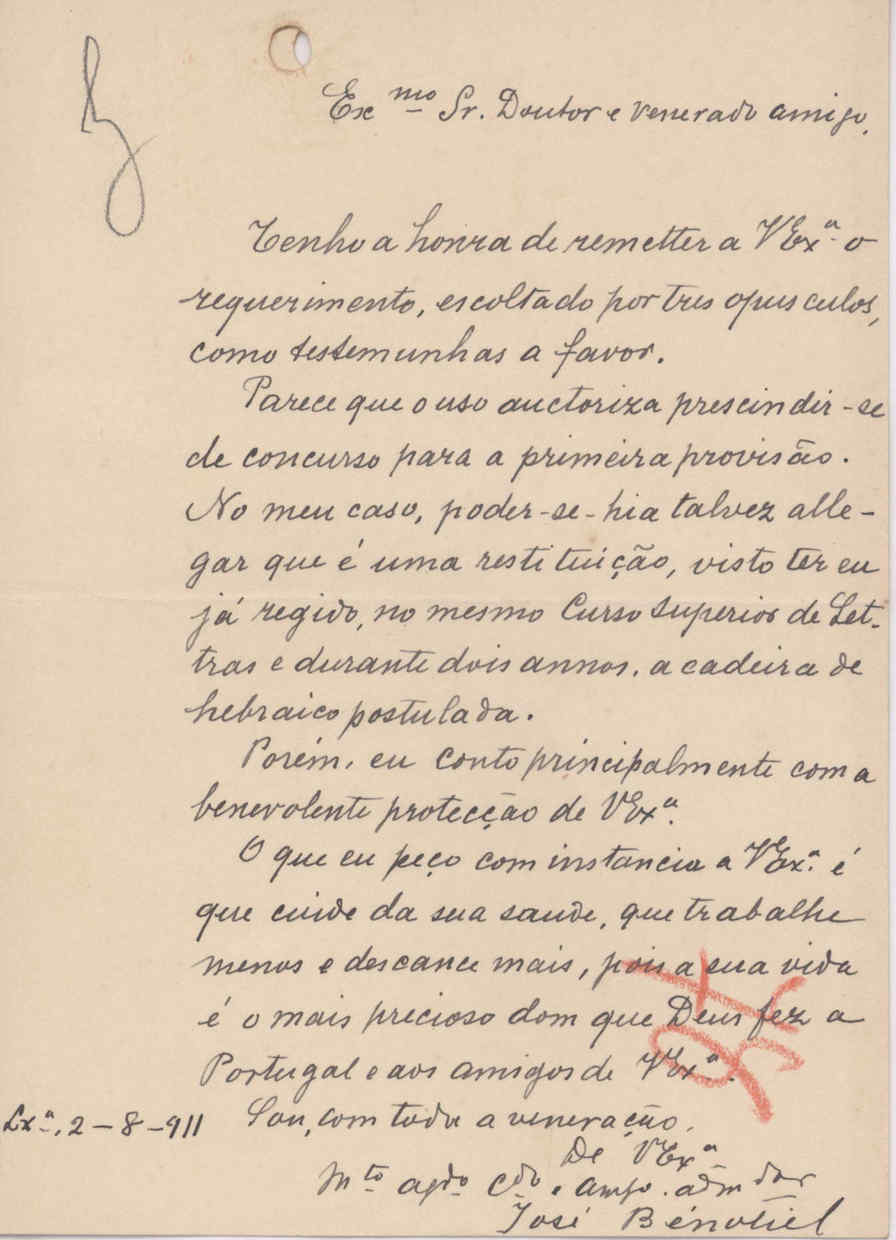 Ex mo Sr. Doutor e venerado amigo,
Tenho a honra de remetter a VExª o
requerimento, escoltado por tres opusculos,
como testemunhas a favor.
Parece que o uso auctoriza prescindir-se
de concurso para a primeira provisão.
No meu caso, poder-se-hia talvez alle-
gar que é uma restituição, visto ter eu
já regido, no mesmo Curso Superior de Let-
tras e durante dois annos, a cadeira de
hebraico postulada.
Porém, eu conto principalmente com a
benevolente protecção de VExª.
O que eu peço com instancia a VExª. é
que cuide da sua saude, que trabalhe
menos e descance mais, pois a sua vida
é o mais precioso dom que Deus fez a
Portugal e aos amigos de VExª.
Lxª. 2-8-911
Sou, com toda a veneração,
De VExª
Mto agdo cdo e amgo. admdor
José Benoliel